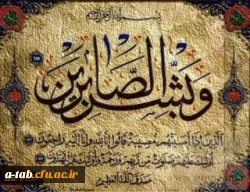 بسم الله الرحمن الرحيم
وَبَشِّرِ الصَّابِرِينَ
الذين إذا أصابتهم مصيبة قالوا إنا لله وإنا إليه راجعون
أولئك عليهم صلوات من ربهم ورحمة وأولئك هم المهتدون
صدق الله العظيم
a-tab.cfu.ac.ir